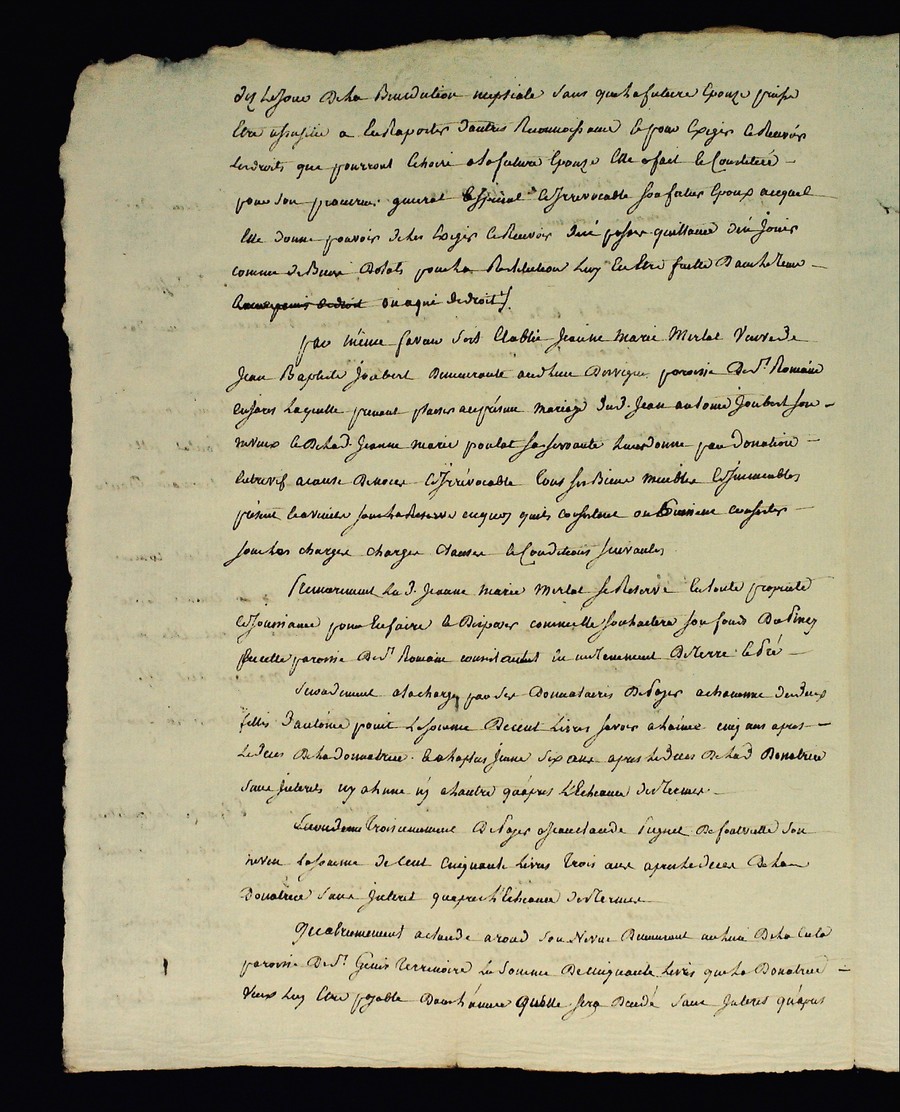 des Le Jour De La Benediction nuptiale sans que La future Epouze puisse
Etre assujetie a En Raporter d'autres Reconnoissance Et pour Exiger Et Recevoir
Les droits que pourront Echoir a La future Epouze Elle a fait Et Constitué
pour Son procureur general Espécial Et Irrevocable Son futur Epoux auquel
Elle donne pouvoir de Les Exiger Et Recevoir d'en passer quittance d'en Jouir
comme de Biens Dotals pour La Restitution Luy En Etre faitte Dans Le tems
ou a qui de droit
par même faveur S'est Etablie Jeanne Marie Merlat Veuve de
Jean Baptiste Joubert Demeurante au Lieu Dorvigne paroisse De St. Romain
En Jars Laquelle prenant plaisir au présent mariage Dud. Jean antoine Joubert Son
neveux Et De Lad. Jeanne Marie poulat Sa Servante Leur donne par donation
Entrevif a cause De noces Et Irrévocable tous Ses Biens Meubles Et Immeubles
présent Et avenir Sans La Reserve en quoy quils Consistent ou Puissent Consister
Sous Les charges charges Clauses Et Conditions Suivantes
Premierement La d. Jeanne Marie Merlat Se Reserve En toute propriété
Et Jouissance pour En faire Et Disposer comme Elle Souhaitera Son fond Du
Sur cette paroisse De St. Romain consistant En un tenement De terre Et Pré
Secondement a La charge par Ses Donnataires De Payer a chacunne des deux
filles d'antoine La Somme De cent Livres Savoir a L'ainée cinq ans apres
Le deces De La donnatrice Et a La plus Jeune Six ans apres Le deces De Lad. Donatrice
Sans Interets ny a L'une ny a L'autre qu'apres L'Echeance Des termes
Troisiemement De Payer a Jean claude De Son
neveu La Somme de Cent Cinquante Livres trois ans apres Le deces De La
Donatrice Sans Interet qu'apres L'Echeance Des termes
Quatriemement a claude aroud Son Neveu Demeurant au Lieu De La
paroisse De St. Genis terrenoire La Somme De cinquante Livres que La Donatrice
Veux Luy Etre payable Dans L'année quelle Sera Decedé Sans Interets qu'apres